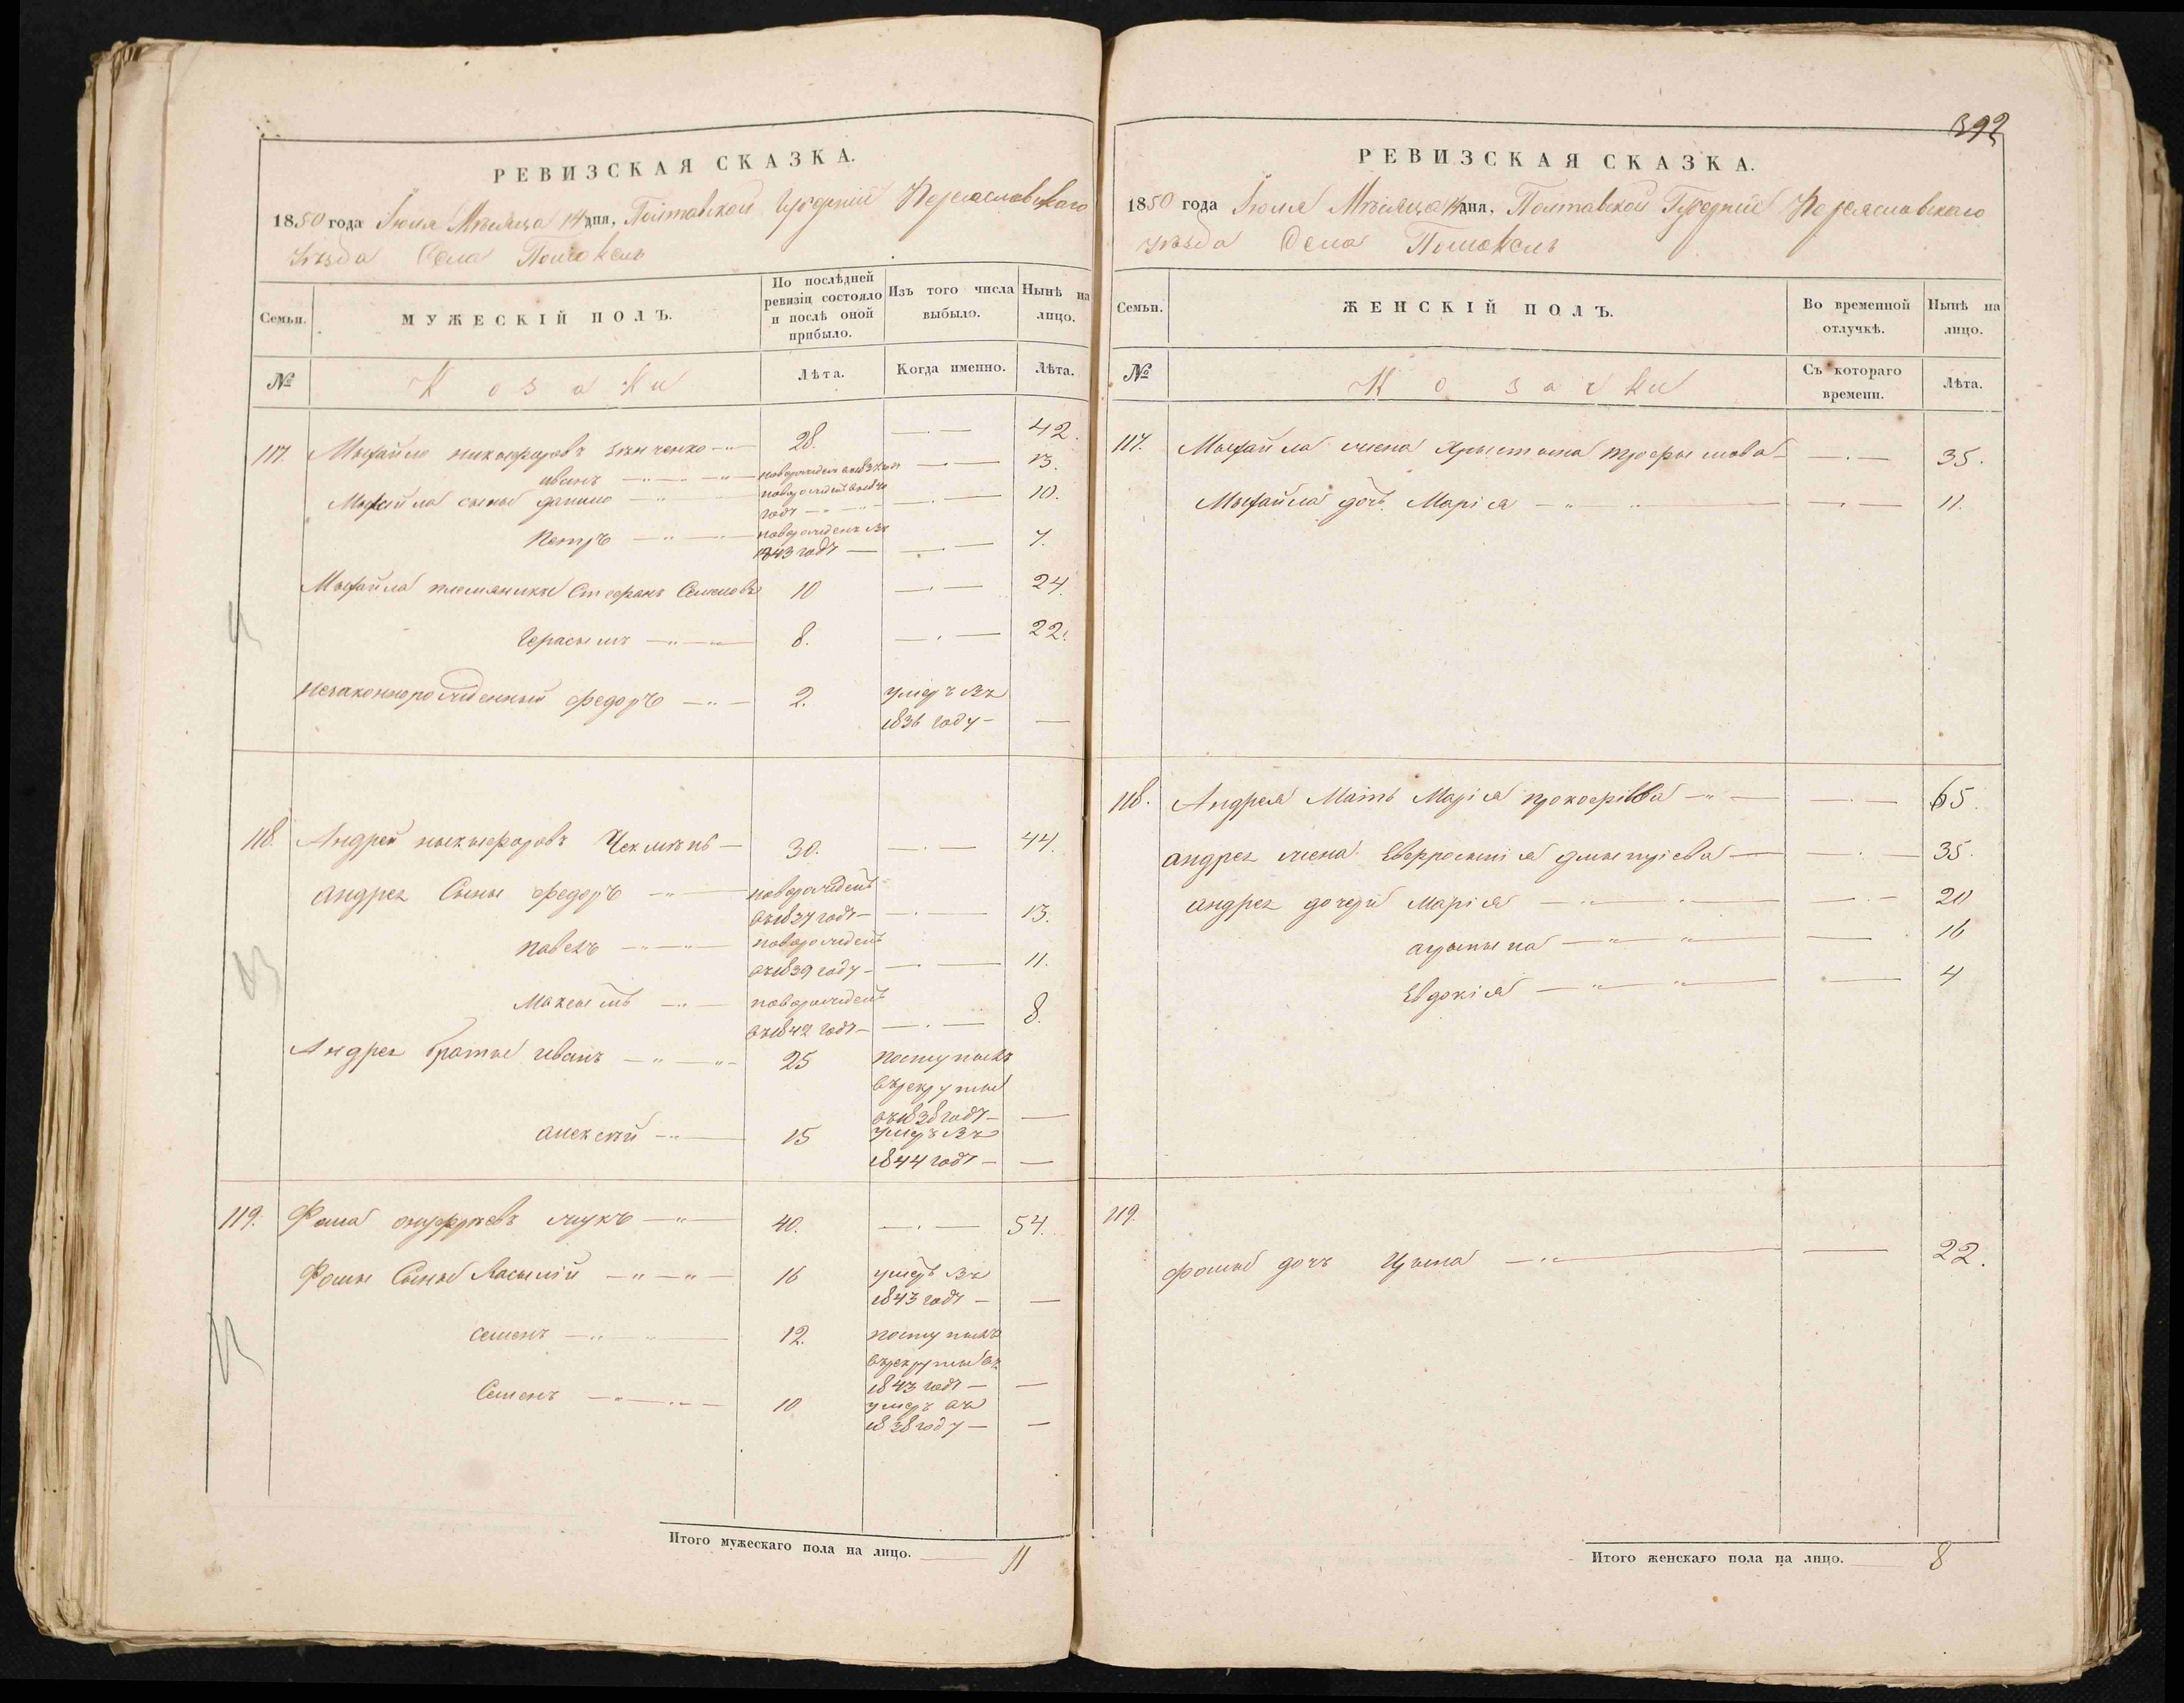 РЕВИЗСКАЯ СКАЗКА.
1850 года Іюля Мѣсяца 14 дня, Полтавской Губерніи Переяславскаго
уѣзда Села Помоклъ
Семьи.
МУЖЕСКІЙ ПОЛЪ.
По послѣдней ревизіи состояло и послѣ оной прибыло.
Изъ того числа выбыло.
Нынѣ на лицо.
№
Козаки
Лѣта.
Когда именно.
Лѣта.
117. Мыхайло никифоровъ зѣнченко 28. 42.
иванъ новорожденъ 13.
Мыхайла сыны данило новорожденъ 10.
годѣ
Петръ новорожденъ въ
1843 годѣ 7.
Мыхайла племяники Стефанъ Семеновъ 10 24.
Герасымъ 8. 22.
незаконнорожденный федоръ 2. умеръ въ
1836 году
118. Андрей ныкыфоровъ Чекмѣнь 30. 44.
андрея Сыны федоръ новорожденъ
въ 1837 годѣ 13.
павелъ новорожденъ
въ 1839 году 11.
Максымъ новорожденъ
въ 1842 годѣ 8.
Андрея братья иванъ 25 поступылъ
въ рекруты
въ 1838 годѣ
алексѣй 15 умеръ въ
1844 годѣ
119. Фома онуфріевъ жукъ 40. 54.
Фомы Сыны Васылій 16 умеръ въ
1843 годѣ
семенъ 12. поступылъ
въ рекруты въ
1843 годѣ
Семенъ 10 умеръ въ
1838 году
Итого мужескаго пола на лицо. 11
392
РЕВИЗСКАЯ СКАЗКА.
1850 года Іюля Мѣсяца 14 дня, Полтавской Губерніи Переяславскаго
уѣзда Села Помоклъ
Семьи.
ЖЕНСКІЙ ПОЛЪ.
Во временной отлучкѣ.
Нынѣ на лицо.
№
Козачки
Съ котораго времени.
Лѣта.
117. Мыхайла жена Хрыстына трофымова 35.
Мыхайла дочь Марія 11.
118. Андрея Мать Марія прокофіева 65.
андрея жена Евфросынія дмытріева 35.
андрея дочери Марія 20
агрыпына 16
Евдокія 4
119.
фомы дочь Ирына 22.
Итого женскаго пола на лицо. 8